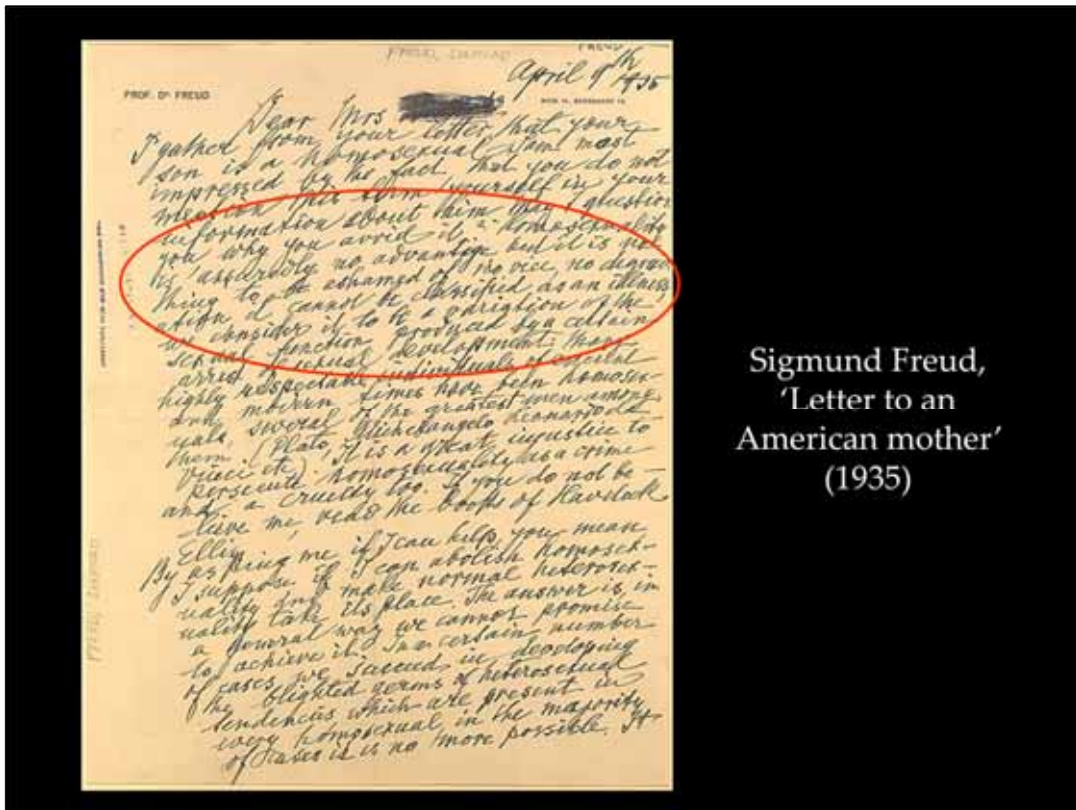 FREUD, SIGMUND
FREUD
April 9th 1935
PROF. Dr. FREUD
WIEN, IX., BERGGASSE 19.
Dear Mrs
I gather from your letter, that your
son is a homosexual. I am most
impressed by the fact, that you do not
mention this term yourself in your
information about him. May I question
you why you avoid it? Homosexuality
is assuredly no advantage but it is no-
thing to be ashamed of, no vice, no degrad-
ation it cannot be classified as an illness
we consider it to be a variation of the
sexual function produced by a certain
arrest of sexual development. Many
highly respectable individuals of ancient
and modern times have been homosex-
uals, several of the greatest men among
them (Plato, Michelangelo, Leonardo da
Vinci etc). It is a great injustice to
persecute homosexuality as a crime
and a cruelty too. If you do not be-
lieve me, read the books of Havelock
Ellis.
By asking me if I can help, you mean
I suppose if I can abolish homosex-
uality and make normal heterosex-
uality take its place. The answer is, in
a general way we cannot promise
to achieve it. In a certain number
of cases we succeed in developing
the blighted germs of heterosexual
tendencies which are present in
every homosexual in the majority
of cases it is no more possible. It
FREUD, SIGMUND
Sigmund Freud,
‘Letter to an
American mother’
(1935)